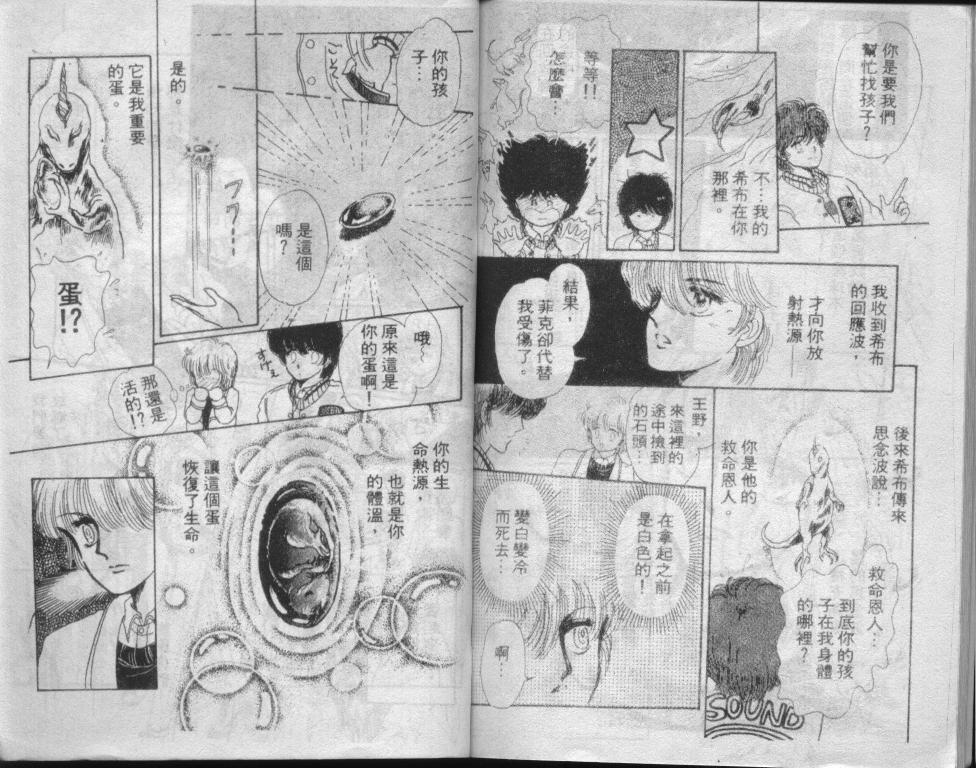 你是要我們
幫忙找孩子？
不…我的
希布在你
那裡。
等等！！
怎麼會…
我收到希布
的回應波，
才向你放
射熱源—
結果，
菲克卻代替
我受傷了。
後來希布傳來
思念波說…
你是他的
救命恩人。
救命恩人…
到底你的孩
子在我身體
的哪裡？
SOUND
王野，
來這裡的
途中撿到
的石頭…
在拿起之前
是白色的！
變白變冷
而死去…
啊…
你的孩
子…
ごくっ
是這個
嗎？
是的。
フワ——
它是我重要
的蛋。
蛋！？
哦～
原來這是
你的蛋啊！
すげぇ
那還是
活的！？
你的生
命熱源，
也就是你
的體溫，
讓這個蛋
恢復了生命。